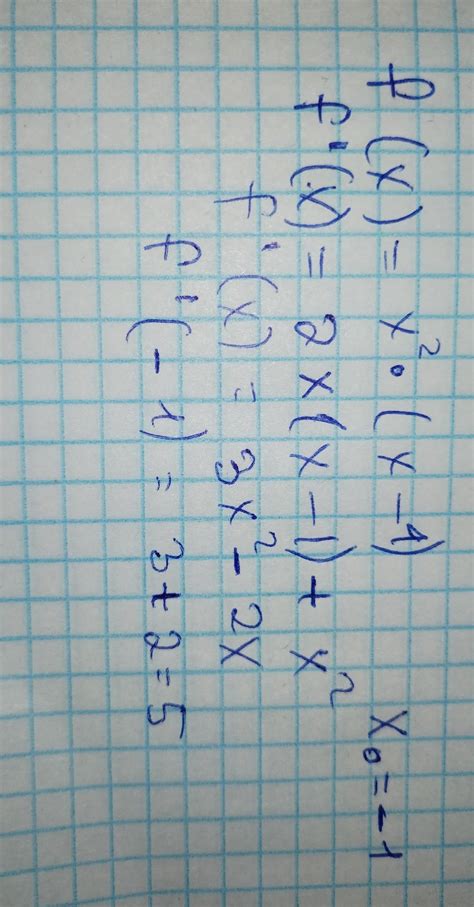 f(x) = x²·(x-1)   x₀=-1
f'(x) = 2x(x-1)+x²
f'(x) = 3x²-2x
f'(-1) = 3+2=5